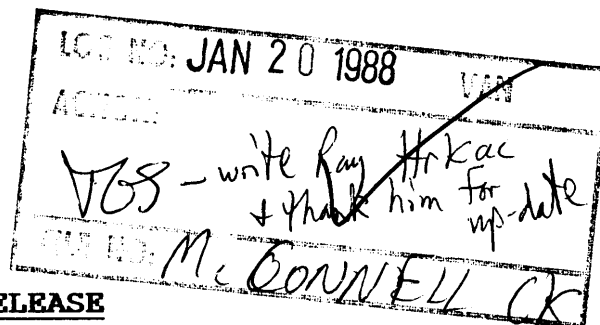 LOG NO: JAN 20 1988 VAN
ACTION:
TGS - write Ray Hrkac
+ thank him for
up-date
FILE NO: McCONNELL CK
RELEASE